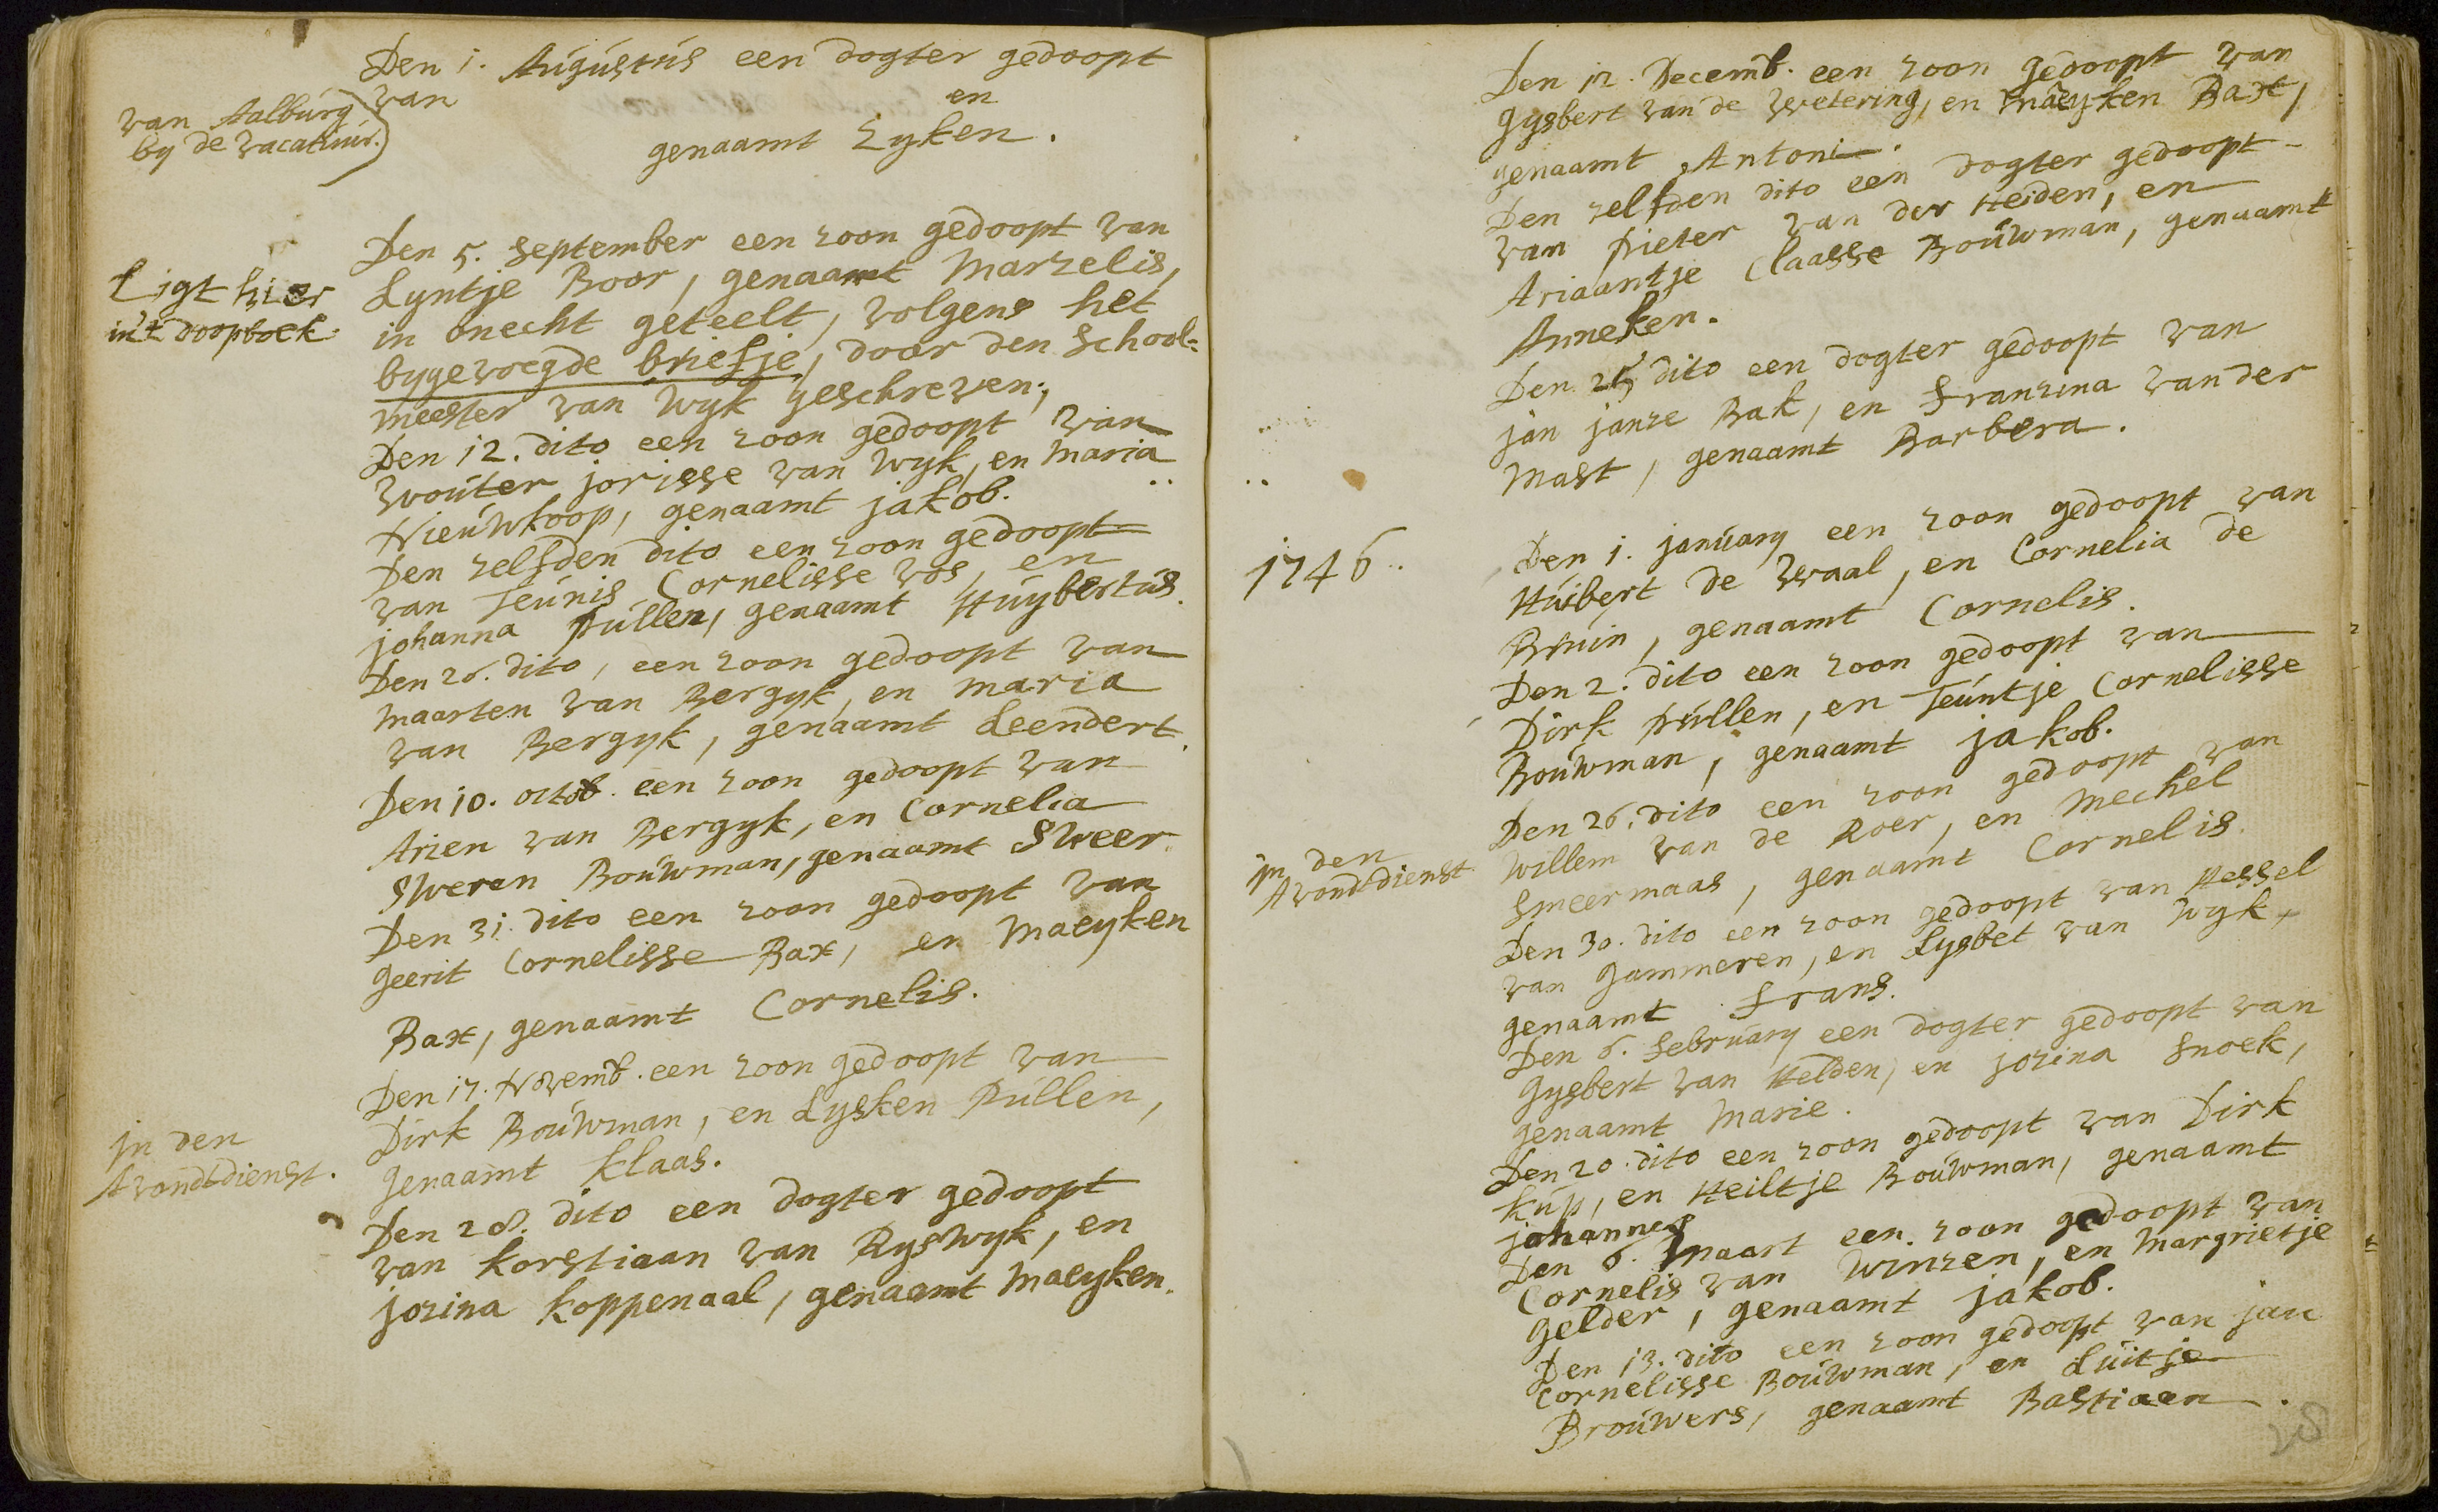 Den 1. Augustus een dogter gedoopt
van Aalburg van en
by de vacatuur.
genaamt Eyken.
Den 5. September een zoon gedoopt van
Ligt hier Lyntje Boor, genaamt Marzelis,
in't doopboek. in onecht geteelt, volgens het
bygevoegde briefje, door den School=
meester van Wyk geschreven;
Den 12. dito een zoon gedoopt van
Wouter jorisse van Wyk, en Maria
Nieuwkoop, genaamt jakob.
Den zelfden dito een zoon gedoopt
van Teunis Cornelisse Vos, en
johanna Pullen, genaamt Huybertus.
Den 26. dito, een zoon gedoopt van
Maarten van Bergyk, en Maria
van Bergyk, genaamt Leendert.
Den 10. octob. een zoon gedoopt van
Arien van Bergyk, en Cornelia
Sweren Bouwman, genaamt Sweer.
Den 31. dito een zoon gedoopt van
Geerit Cornelisse Bax, en Maeyken
Bax, genaamt Cornelis.
Den 17. Novemb. een zoon gedoopt van
in den Dirk Bouwman, en Lysken Pullen,
Avondtdienst. genaamt Klaas.
Den 28. dito een dogter gedoopt
van Korstiaan van Ryswyk, en
jozina Koppenaal, genaamt Maeyken.
Den 12. Decemb. een zoon gedoopt van
Gysbert van de Wetering, en Maeyken Bax,
genaamt Antoni.
Den zelfden dito een dogter gedoopt
van Pieter van der Heiden, en
Ariaantje Claasse Bouwman, genaamt
Anneken.
Den dito een dogter gedoopt van
jan janze Bak, en Franzina van der
Mast, genaamt Barbera.
1746. Den 1. january een zoon gedoopt van
Huibert de Waal, en Cornelia de
Bruin, genaamt Cornelis.
Den 2. dito een zoon gedoopt van
Dirk Pullen, en Teuntje Cornelisse
Bouwman, genaamt jakob.
Den 26. dito een zoon gedoopt van
in den Willem van de Roer, en Mechel
Avondtdienst Smeermaas, genaamt Cornelis.
Den 30. dito een zoon gedoopt van Hessel
van Gammeren, en Lysbet van Wyk,
genaamt Frans.
Den 6. February een dogter gedoopt van
Gysbert van Helden, en jozina Snoek,
genaamt Marie.
Den 20. dito een zoon gedoopt van Dirk
Kup, en Heiltje Bouwman, genaamt
johannes
Den 6. Maart een zoon gedoopt van
Cornelis van Winzen, en Margrietje
Gelder, genaamt jakob.
Den 13. dito een zoon gedoopt van jan
Cornelisse Bouwman, en Luitje
Brouwers, genaamt Bastiaen.
28